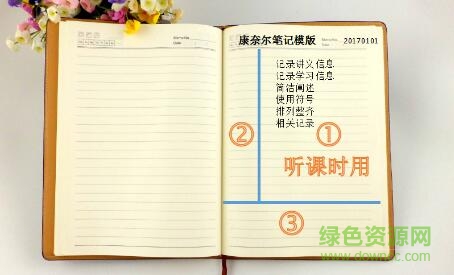 康奈尔笔记模版 20170101
记录讲义信息
记录学习信息
简洁阐述
使用符号
排列整齐
相关记录
② ①
听课时用
③
绿色资源网